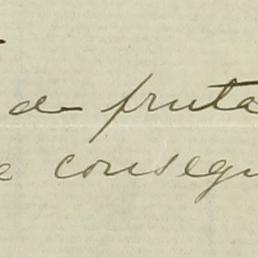 de fruta
e consegu